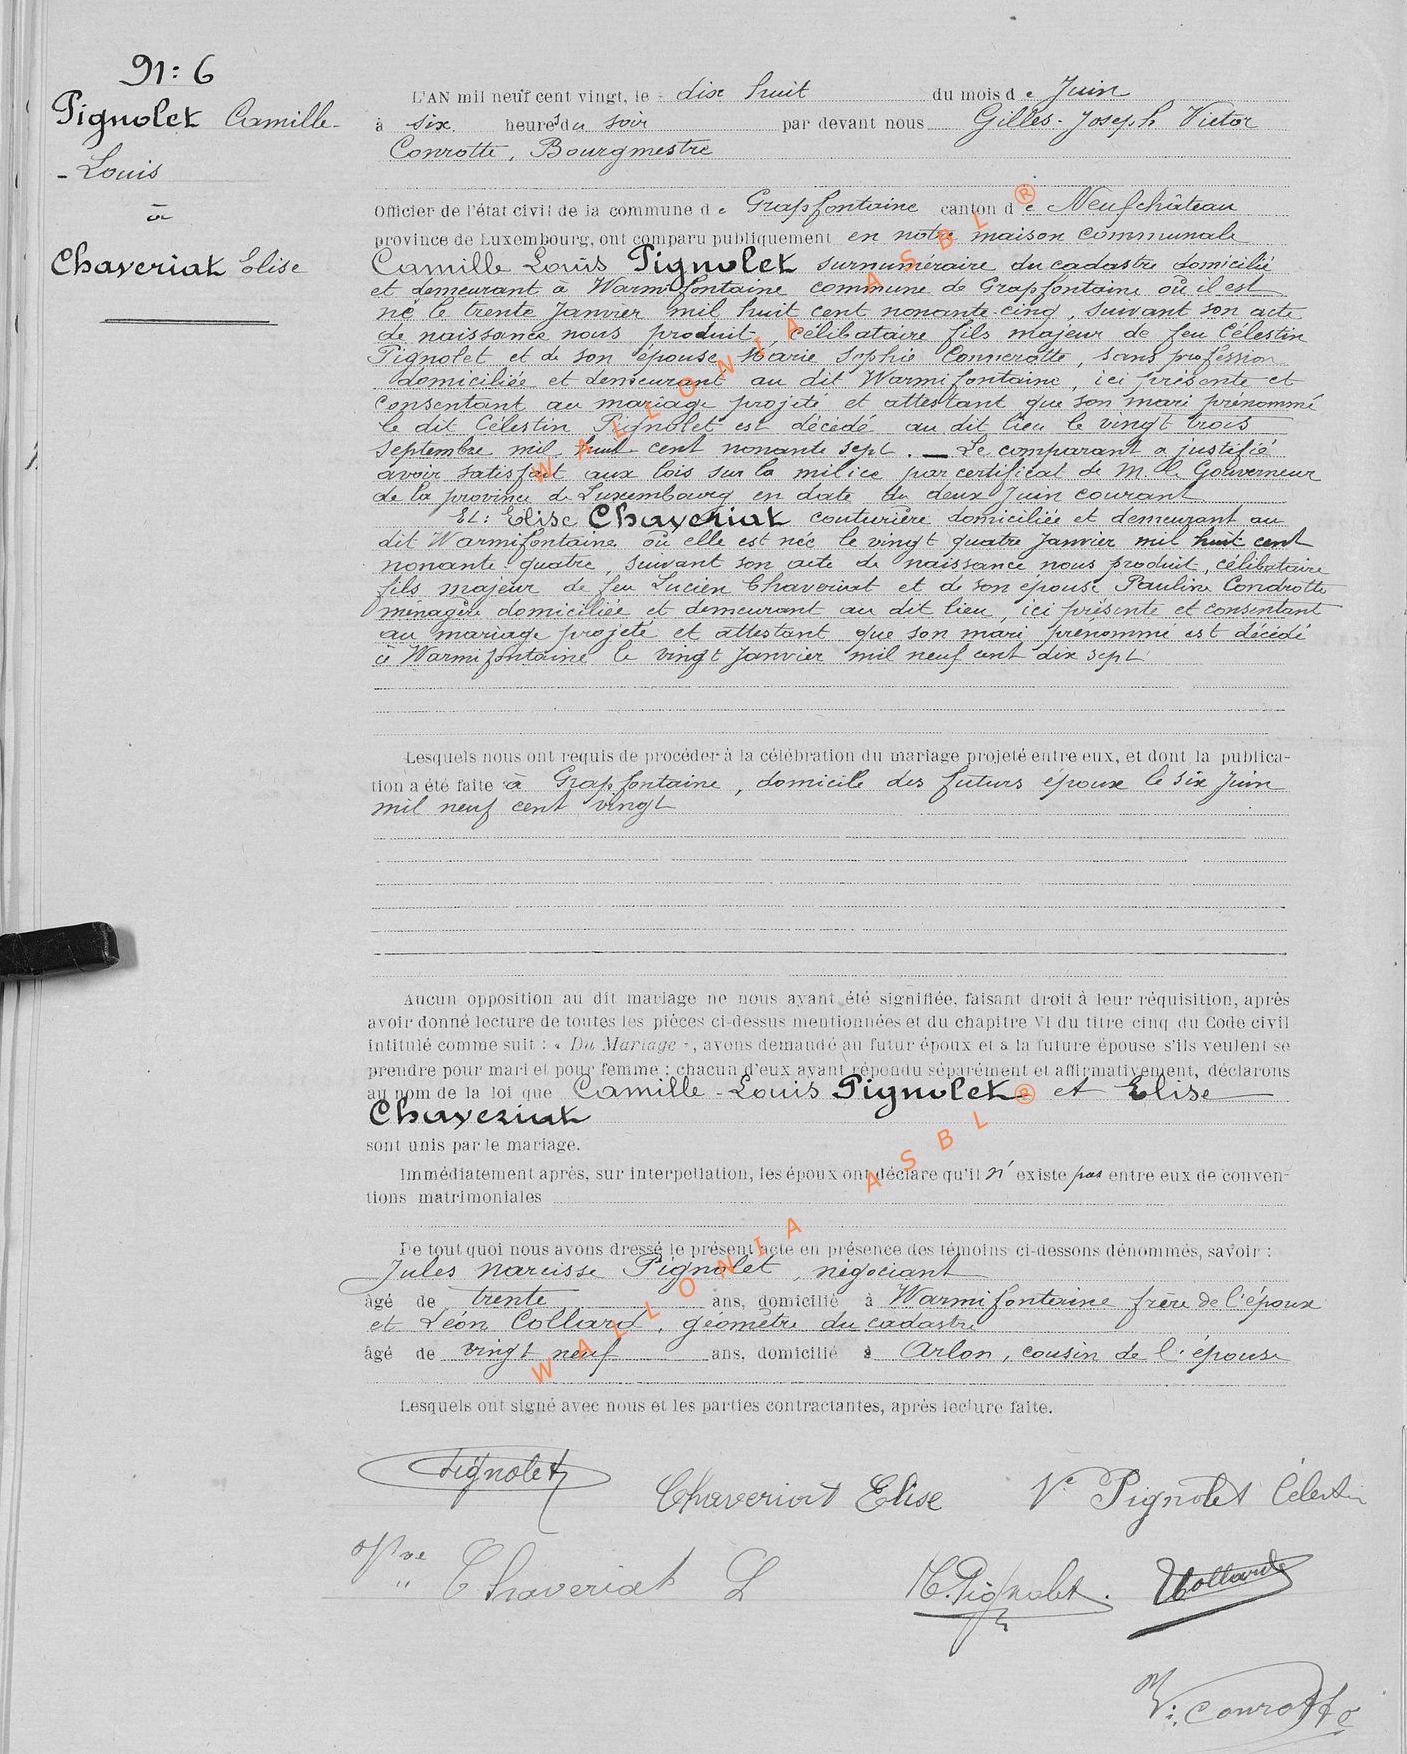 N: 6
Pignolet Camille-
- Louis
à
Chaveriat Elise
L'AN mil neuf cent vingt, le dix huit du mois de Juin
à six heures du soir par devant nous Gilles-Joseph Victor
Conrotte, Bourgmestre
Officier de l'état civil de la commune de Grapfontaine canton de Neufchâteau
province de Luxembourg, ont comparu publiquement en notre maison communale
Camille Louis Pignolet surnuméraire du cadastre domicilié
et demeurant à Warmifontaine commune de Grapfontaine où il est
né le trente Janvier mil huit cent nonante cinq, suivant son acte
de naissance nous produit, célibataire fils majeur de feu Célestin
Pignolet et de son épouse Marie Sophie Connerotte, sans profession
domiciliée et demeurant au dit Warmifontaine, ici présente et
consentant au mariage projeté et attestant que son mari prénommé
le dit Célestin Pignolet est décédé au dit lieu le vingt trois
Septembre mil huit cent nonante sept. — Le comparant a justifié
avoir satisfait aux lois sur la milice par certificat de M. le Gouverneur
de la province de Luxembourg en date du deux Juin courant
Et: Elise Chaveriat couturière domiciliée et demeurant au
dit Warmifontaine où elle est née le vingt quatre Janvier mil huit cent
nonante quatre, suivant son acte de naissance nous produit, célibataire
fils majeur de feu Lucien Chaveriat et de son épouse Pauline Condrotte
ménagère domiciliée et demeurant au dit lieu, ici présente et consentant
au mariage projeté et attestant que son mari prénommé est décédé
à Warmifontaine le vingt Janvier mil neuf cent dix sept
Lesquels nous ont requis de procéder à la célébration du mariage projeté entre eux, et dont la publica-
tion a été faite à Grapfontaine, domicile des futurs époux le six Juin
mil neuf cent vingt
Aucun opposition au dit mariage ne nous ayant été signifiée, faisant droit à leur réquisition, après
avoir donné lecture de toutes les pièces ci-dessus mentionnées et du chapitre VI du titre cinq du Code civil
intitulé comme suit : « Du Mariage », avons demandé au futur époux et à la future épouse s'ils veulent se
prendre pour mari et pour femme ; chacun d'eux ayant répondu séparément et affirmativement, déclarons
au nom de la loi que Camille-Louis Pignolet et Elise
Chaveriat
sont unis par le mariage.
Immédiatement après, sur interpellation, les époux ont déclaré qu'il n'existe pas entre eux de conven-
tions matrimoniales
De tout quoi nous avons dressé le présent acte en présence des témoins ci-dessons dénommés, savoir :
Jules Narcisse Pignolet, négociant
âgé de trente ans, domicilié à Warmifontaine frère de l'époux
et Léon Collard, géomètre du cadastre
âgé de vingt neuf ans, domicilié à Arlon, cousin de l'épouse
Lesquels ont signé avec nous et les parties contractantes, après lecture faite.
Pignolet
Chaveriat Elise
Ve Pignolet Célestin
Vve Chaveriat L
Pignolet.
Collard
V. Conrotte
WALLONIA ASBL ®
WALLONIA ASBL ®